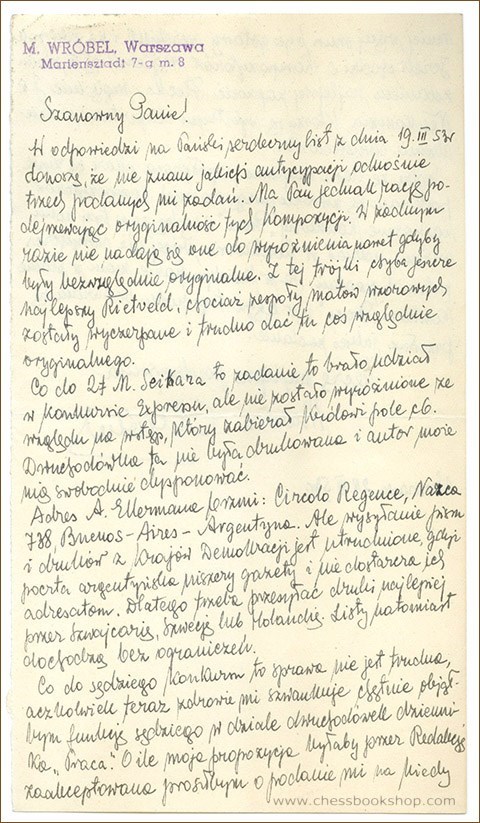 M. WRÓBEL, Warszawa
Mariensztadt 7-a m. 8
Szanowny Panie!
W odpowiedzi na Pański serdeczny list z dnia 19.III 53r
donoszę, że nie znam jakiejś antycypacji odnośnie
trzech podanych mi zadań. Ma Pan jednak rację po-
dejrzewając oryginalność tych kompozycji. W żadnym
razie nie nadają się one do wyróżnienia nawet gdyby
były bezwzględnie oryginalne. Z tej trójki chyba jeszcze
najlepszy Rietveld, chociaż zespoły matów wzorowych
zostały wyczerpane i trudno dać tu coś względnie
oryginalnego.
Co do 27 M. Scikara to zadanie to brało udział
w konkursie Expresu, ale nie zostało wyróżnione ze
względu na wstęp, który zabierał królowi pole c6.
Dwuchodówka ta nie była drukowana i autor może
nią swobodnie dysponować.
Adres A. Ellermana brzmi: Circolo Regence, Nazca
738, Buenos-Aires - Argentyna. Ale wysyłanie pism
i druków z Krajów Demokracji jest utrudnione, gdyż
poczta argentyńska niszczy gazety i nie dostarcza ich
adresatom. Dlatego trzeba przesyłać druki najlepiej
przez Szwajcarię, Szwecję lub Holandię. Listy natomiast
dochodzą bez ograniczeń.
Co do sędziego konkursu to sprawa nie jest trudna,
aczkolwiek teraz zdrowie mi szwankuje chętnie objął-
bym funkcję sędziego w dziale dwuchodówek dzienni-
ka "Praca". O ile moja propozycja byłaby przez Redakcję
zaakceptowana prosiłbym o podanie mi na kiedy
www.chessbookshop.com